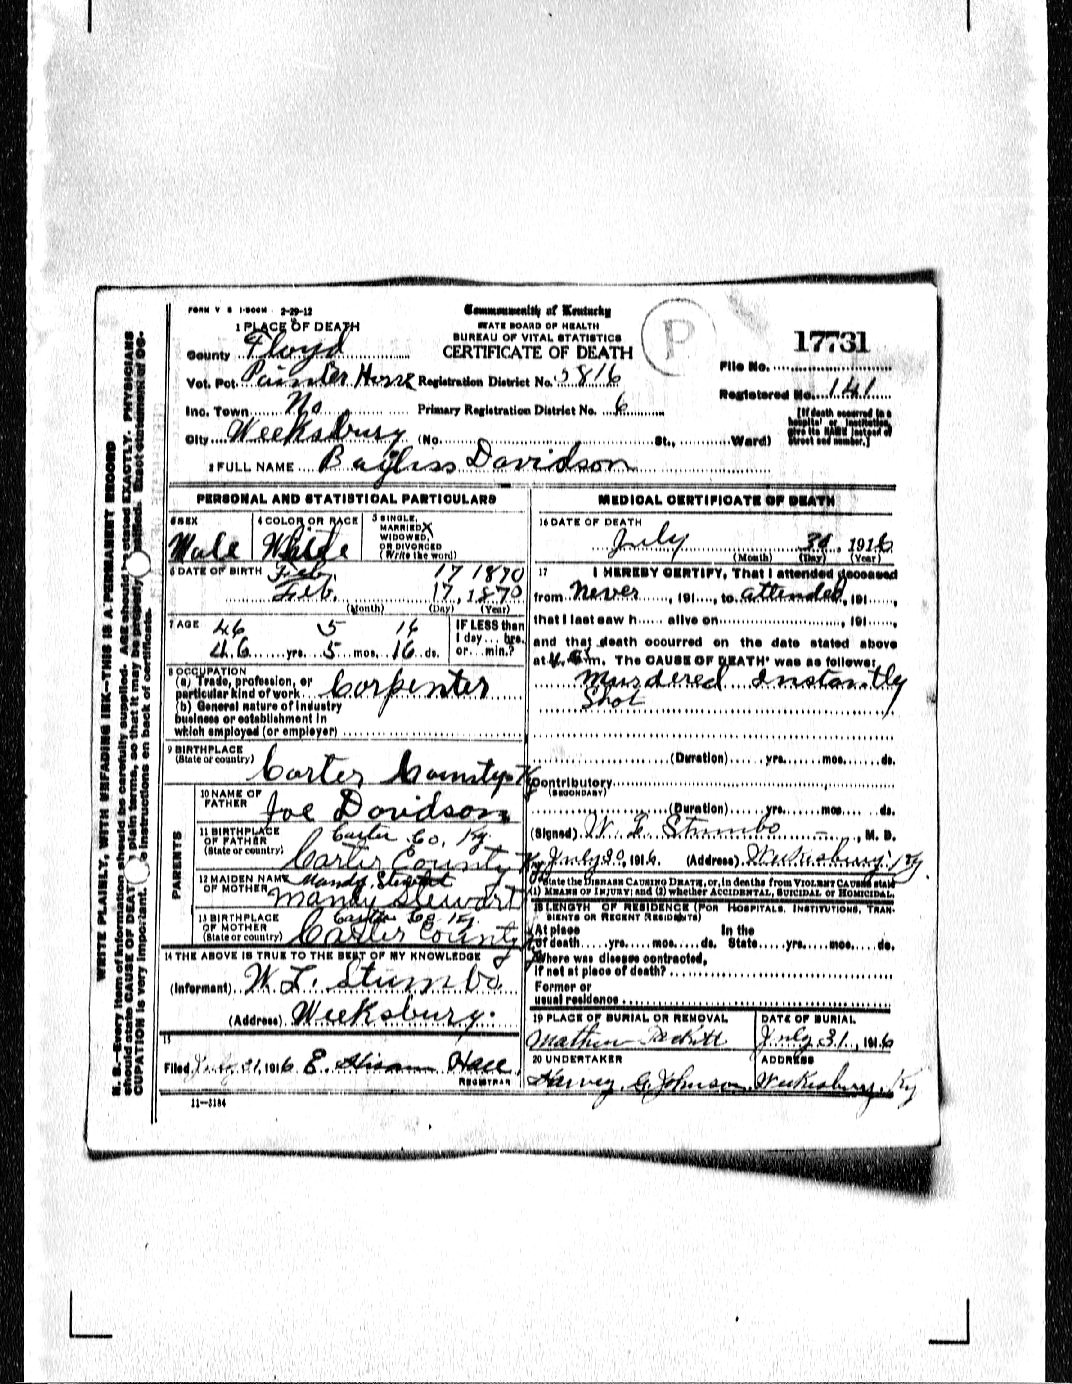 FORM V S 1-500M 2-29-12
Commonwealth of Kentucky
STATE BOARD OF HEALTH
BUREAU OF VITAL STATISTICS
CERTIFICATE OF DEATH
P
17731
File No.
Registered No. 141
[If death occurred in a
hospital or institution,
give its NAME instead of
street and number.]
1 PLACE OF DEATH
County Floyd
Vot. Pct. Registration District No. 5816
Inc. Town No Primary Registration District No. 6
City Weeksbury (No. St., Ward)
2 FULL NAME Bayliss Davidson
PERSONAL AND STATISTICAL PARTICULARS
3 SEX
Male
4 COLOR OR RACE
White
5 SINGLE,
MARRIED X
WIDOWED,
OR DIVORCED
(Write the word)
6 DATE OF BIRTH Feb. 17 1870
Feb. 17, 1870
(Month) (Day) (Year)
7 AGE 46 5 16
46 yrs. 5 mos. 16 ds.
IF LESS than
1 day hrs.
or min.?
8 OCCUPATION
(a) Trade, profession, or
particular kind of work Carpenter
(b) General nature of industry
business or establishment in
which employed (or employer)
9 BIRTHPLACE
(State or country) Carter County Ky
PARENTS
10 NAME OF
FATHER Joe Davidson
11 BIRTHPLACE
OF FATHER
(State or country)
Carter Co. Ky.
Carter County Ky
12 MAIDEN NAME
OF MOTHER
Mandy Stewart
Mandy Stewart
13 BIRTHPLACE
OF MOTHER
(State or country)
Carter Co Ky.
Carter County Ky
14 THE ABOVE IS TRUE TO THE BEST OF MY KNOWLEDGE
(Informant) W. L. Stumbo
(Address) Weeksbury.
15
Filed July 31, 1916 E. Hiram Hall
REGISTRAR
11-3184
MEDICAL CERTIFICATE OF DEATH
16 DATE OF DEATH
July 30, 1916
(Month) (Day) (Year)
17 I HEREBY CERTIFY, That I attended deceased
from Never, 191, to attended, 191,
that I last saw h alive on , 191,
and that death occurred on the date stated above
at m. The CAUSE OF DEATH* was as follows:
Murdered Instantly
Shot
(Duration) yrs. mos. ds.
Contributory
(SECONDARY)
(Duration) yrs. mos. ds.
(Signed) W L Stumbo, M. D.
July 30, 1916. (Address) Weeksbury Ky.
*State the DISEASE CAUSING DEATH, or, in deaths from VIOLENT CAUSES state
(1) MEANS OF INJURY; and (2) whether ACCIDENTAL, SUICIDAL or HOMICIDAL.
18 LENGTH OF RESIDENCE (FOR HOSPITALS, INSTITUTIONS, TRAN-
SIENTS OR RECENT RESIDENTS)
At place In the
of death yrs. mos. ds. State yrs. mos. ds.
Where was disease contracted,
if not at place of death?
Former or
usual residence
19 PLACE OF BURIAL OR REMOVAL
Mathew
DATE OF BURIAL
July 31, 1916
20 UNDERTAKER
Harvey G. Johnson
ADDRESS
Weeksbury, Ky
WRITE PLAINLY, WITH UNFADING INK—THIS IS A PERMANENT RECORD
N. B.—Every item of information should be carefully supplied. AGE should be stated EXACTLY. PHYSICIANS
should state CAUSE OF DEATH in plain terms, so that it may be properly classified. Exact statement of OC-
CUPATION is very important. See instructions on back of certificate.